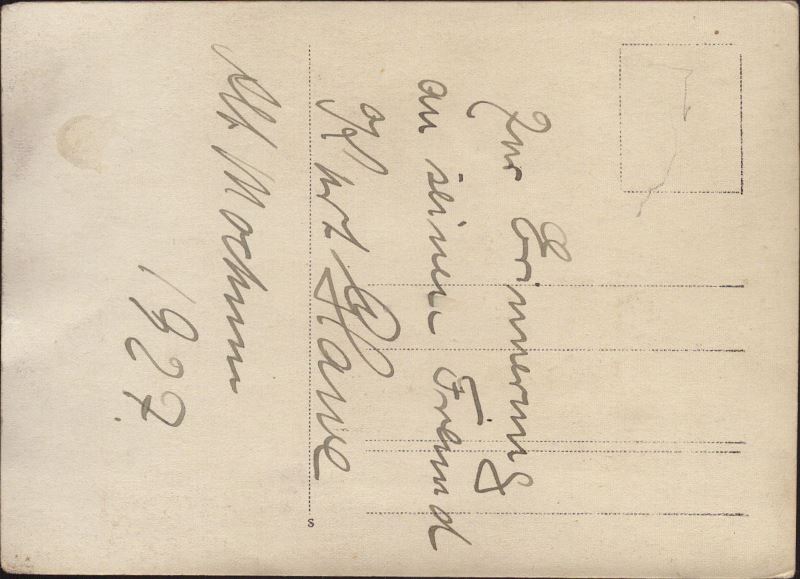 Zur Erinnerung
an seinen Freund
Kurt
Alt Mochum
1927.
s